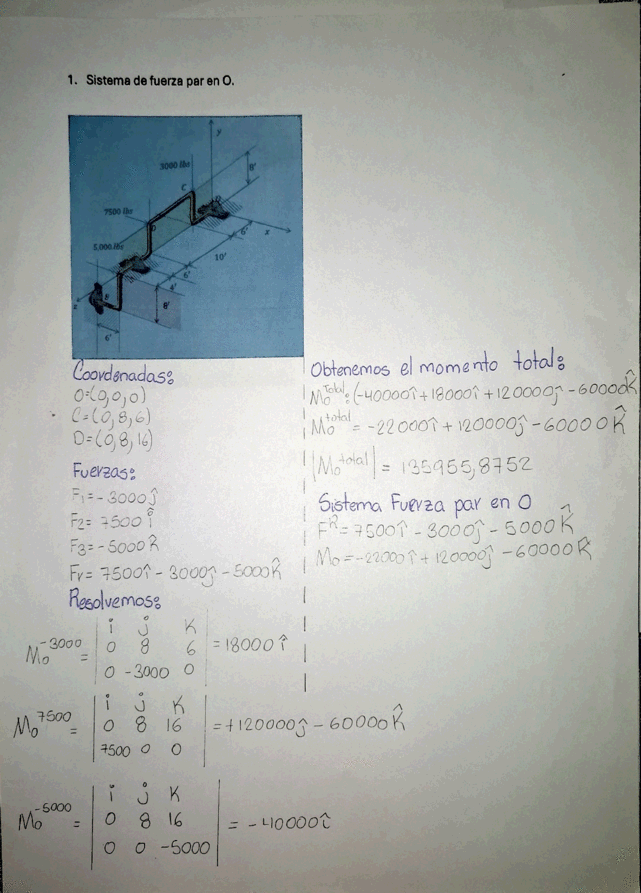 1. Sistema de fuerza par en O.
y
3000 lbs
8'
C
7500 lbs
D
5,000 lbs
6'
x
10'
6'
8'
z
6'
Coordenadas:
O=(0,0,0)
C=(0,8,6)
D=(0,8,16)
Fuerzas:
F1=-3000ĵ
F2= 7500 î
F3=-5000 k̂
Fr= 7500î - 3000ĵ - 5000k̂
Resolvemos:
i j K
Mo^-3000 = 0 8 6 = 18000 î
0 -3000 0
i j K
Mo^7500 = 0 8 16 = +120000ĵ - 60000k̂
7500 0 0
i j K
Mo^-5000 = 0 8 16 = -40000î
0 0 -5000
Obtenemos el momento total:
Mo^Total: (-40000î+18000î+120000ĵ-60000k̂
Mo^total = -22000î+120000ĵ-60000k̂
|Mo^total| = 135955,8752
Sistema Fuerza par en O
F^R=7500î - 3000ĵ - 5000k̂
Mo=-22000î+120000ĵ-60000k̂